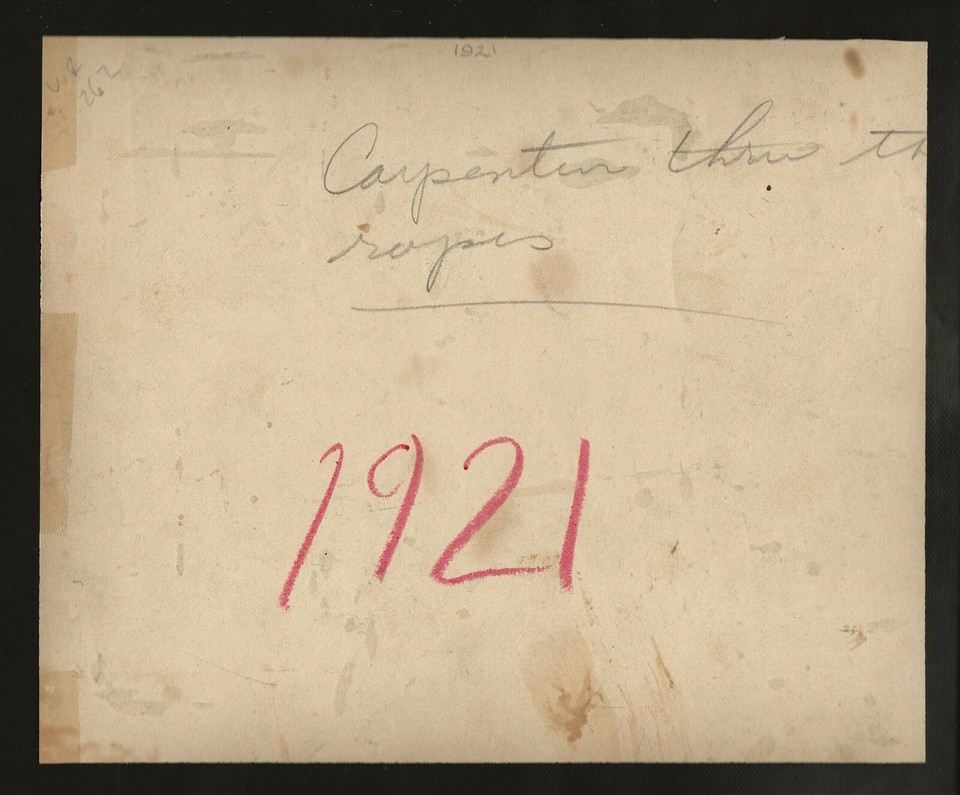 1921
262
Carpentier thru th
ropes
1921